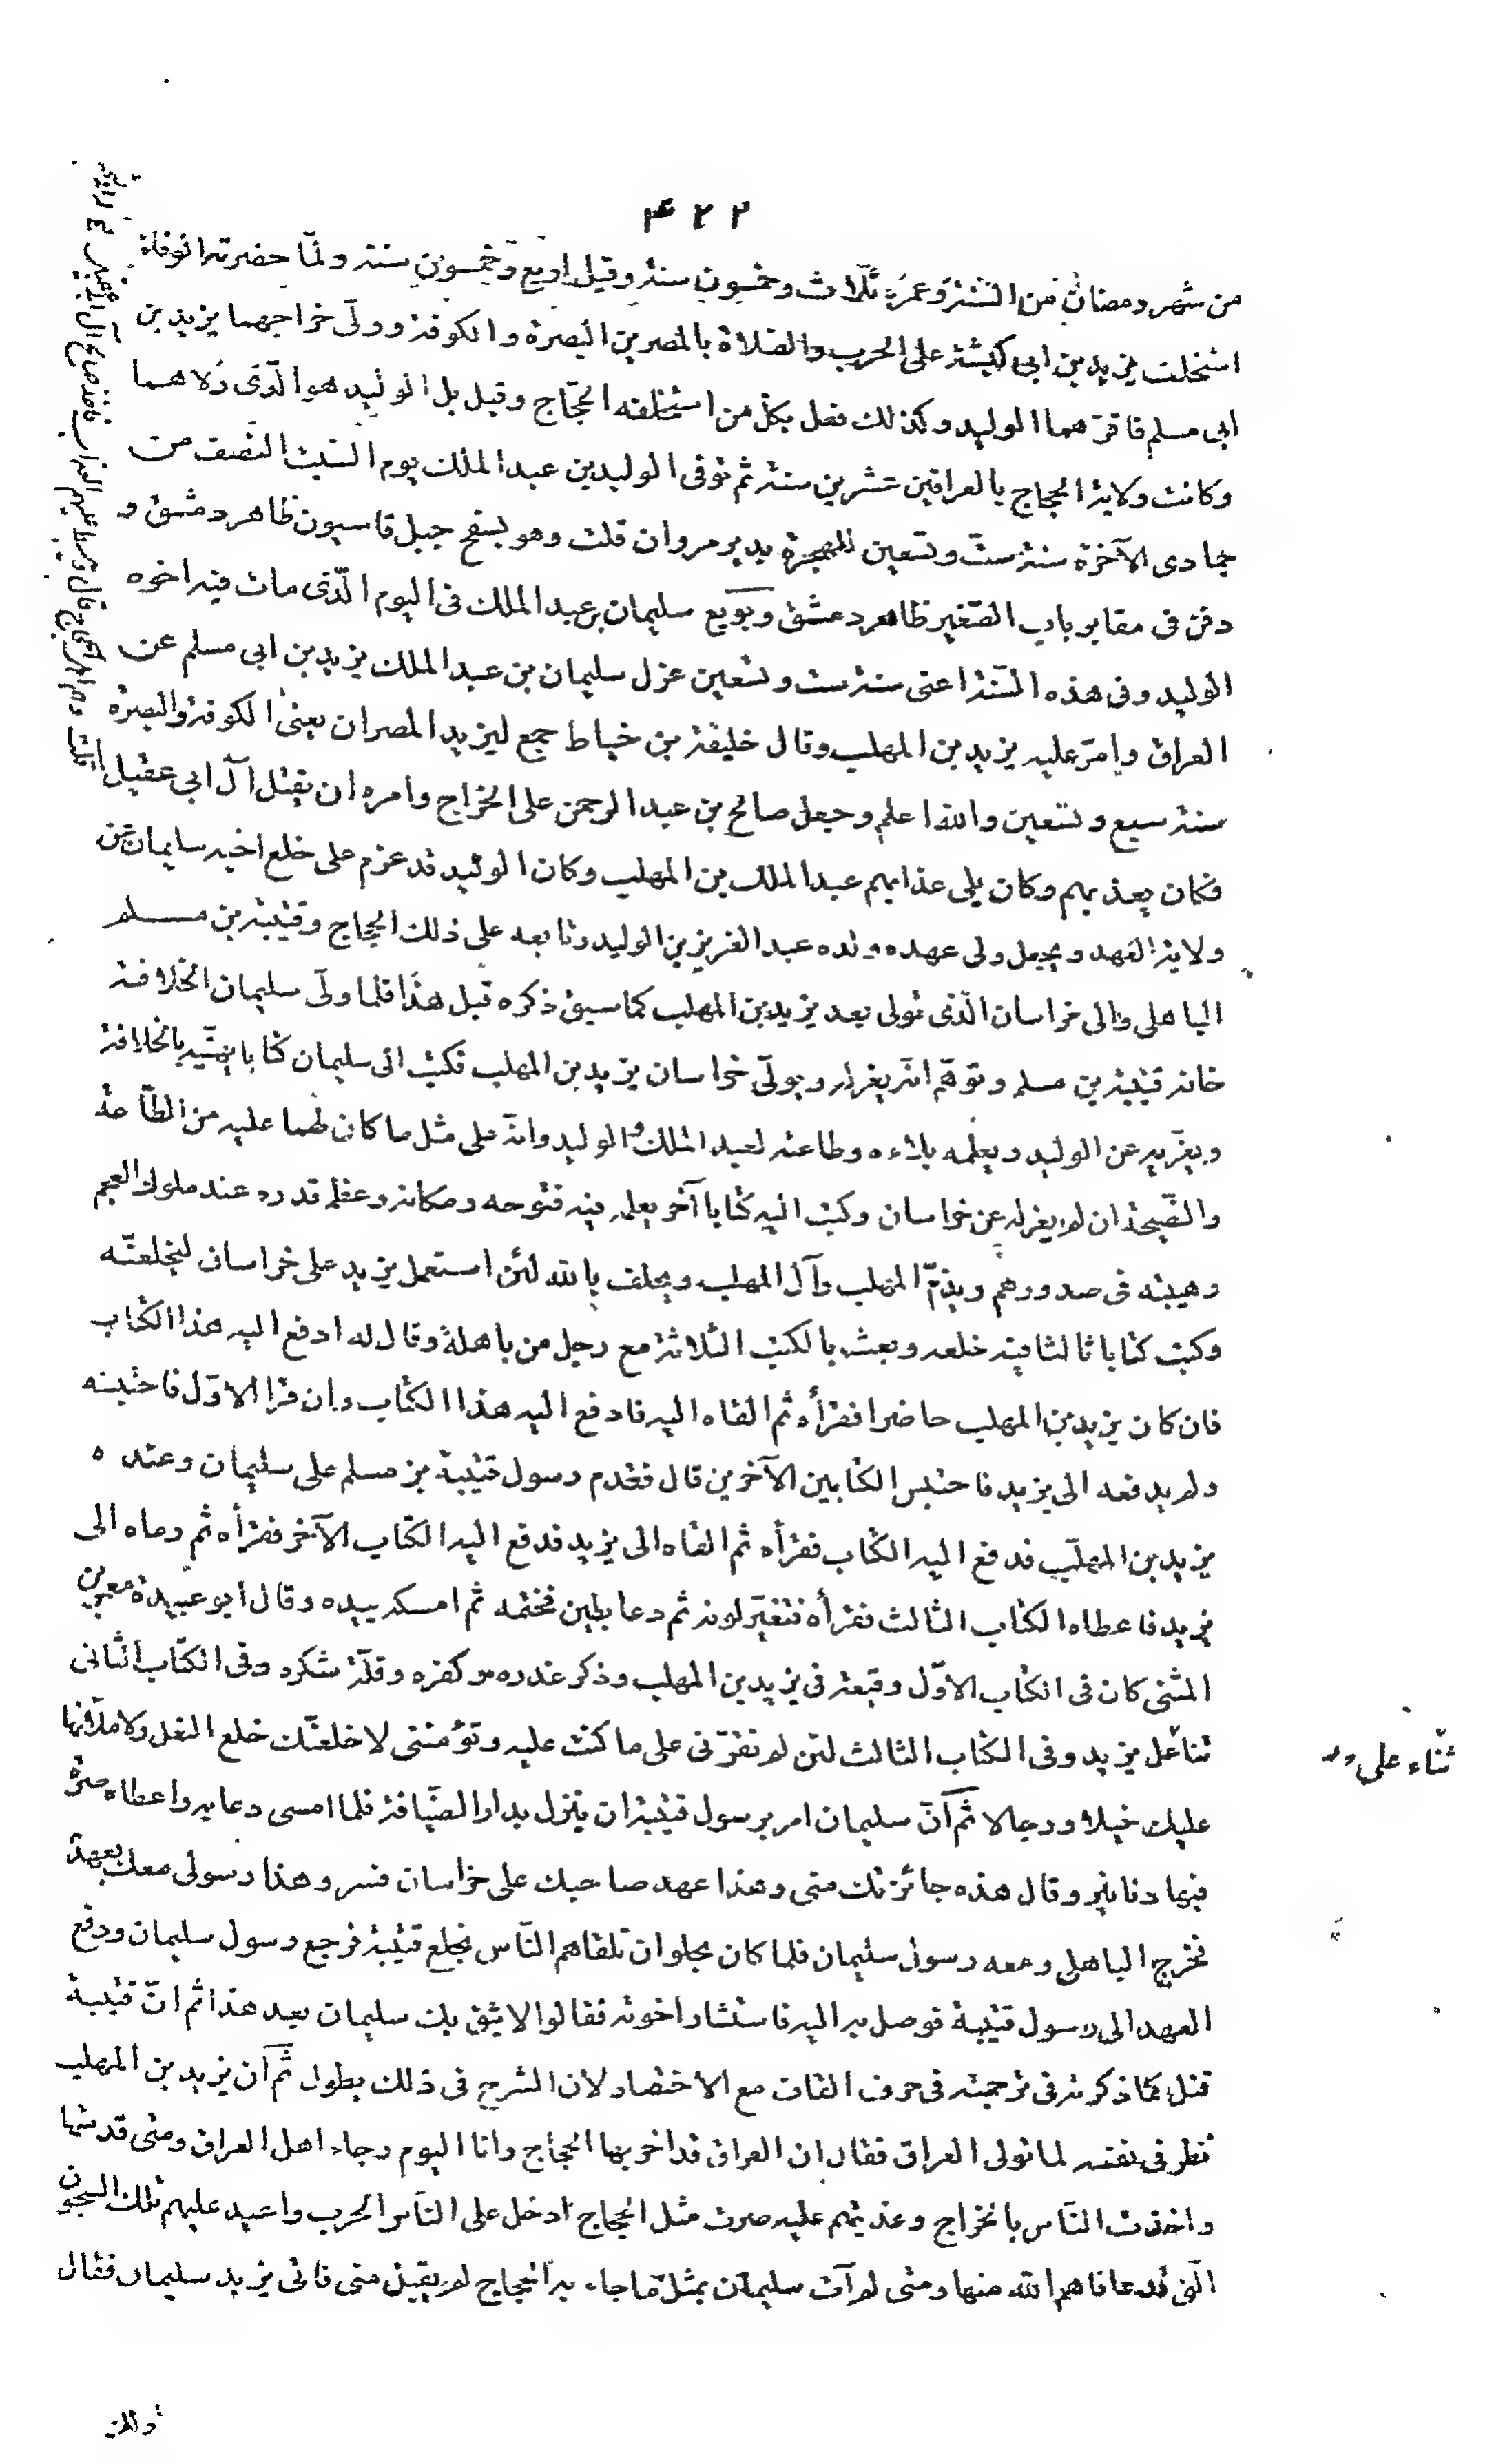 ٤٢٢
من شهر رمضان من السنة وعمره ثلاث وخمسون سنة وقيل اربع وخمسون سنة ولمّا حضرته الوفاة
استخلف يزيد بن ابى كبشة على الحرب والصّلاة بالمصرين البصرة والكوفة وولّى خراجهما يزيد بن
ابى مسلم فاقرّهما الوليد وكذلك فعل بكل من استخلفه الحجّاج وقيل بل الوليد هو الّذى ولاهما
وكانت ولاية الحجاج بالعراقين عشرين سنة ثم توفى الوليد بن عبد الملك يوم السّبت النّصف من
جمادى الآخرة سنة ستّ وتسعين للهجرة بدير مروان قلت وهو بسفح جبل قاسيون ظاهر دمشق و
دفن فى مقابر باب الصّغير ظاهر دمشق وبويع سليمان بن عبد الملك فى اليوم الّذى مات فيه اخوه
الوليد وفى هذه السّنة اعنى سنة ست وتسعين عزل سليمان بن عبد الملك يزيد بن ابى مسلم عن
العراق وامّر عليه يزيد بن المهلب وقال خليفة بن خياط جمع ليزيد المصران يعنى الكوفة والبصرة
سنة سبع وتسعين والله اعلم وجعل صالح بن عبد الرحمن على الخراج وامره ان يقتل آل ابى عقيل
فكان يعذبهم وكان يلى عذابهم عبد الملك بن المهلب وكان الوليد قد عزم على خلع اخيه سليمان عن
ولاية العهد ويجعل ولى عهده ولده عبد العزيز بن الوليد وتابعه على ذلك الحجاج وقتيبة بن مسلم
الباهلى والى خراسان الّذى تولى بعد يزيد بن المهلب كما سبق ذكره قبل هذا فلما ولّى سليمان الخلافة
خافه قتيبة بن مسلم وتوهّم انّه يعزله ويولّى خراسان يزيد بن المهلب فكتب الى سليمان كتابا يهنّيه بالخلافة
ويعزّيه عن الوليد ويعلمه بلاءه وطاعته لعبد الملك والوليد وانّه على مثل ما كان لهما عليه من الطّاعة
والنّصيحة ان لم يعزله عن خراسان وكتب اليه كتابا آخر يعلمه فيه فتوحه ومكانه وعظم قدره عند ملوك العجم
وهيبته فى صدورهم ويذمّ المهلب وآل المهلب ويحلف بالله لئن استعمل يزيد على خراسان ليخلعنّه
وكتب كتابا ثالثا فيه خلعه وبعث بالكتب الثلاثة مع رجل من باهلة وقال له ادفع اليه هذا الكتاب
فان كان يزيد بن المهلب حاضرا فقرأه ثم القاه اليه فادفع اليه هذا الكتاب وان قرا الاوّل فاحتبسه
ولم يدفعه الى يزيد فاحتبس الكتابين الآخرين قال فقدم رسول قتيبة بن مسلم على سليمان وعنده
يزيد بن المهلّب فدفع اليه الكتاب فقرأه ثم القاه الى يزيد فدفع اليه الكتاب الآخر فقرأه ثم رماه الى
يزيد فاعطاه الكتاب الثالث فقرأه فتغيّر لونه ثم دعا بطين فختمه ثم امسكه بيده وقال ابو عبيدة معمر بن
المثنى كان فى الكتاب الاوّل وقيعة فى يزيد بن المهلب وذكر غدره وكفره وقلّة شكره وفى الكتاب الثانى
ثناء على يزيد وفى الكتاب الثالث لئن لم تقرّنى على ما كنت عليه وتؤمننى لاخلعنّك خلع النعل ولاملأنّها
عليك خيلا ورجالا ثم انّ سليمان امر برسول قتيبة ان ينزل بدار الضّيافة فلما امسى دعا به واعطاه صرّة
فيها دنانير وقال هذه جائزتك منى وهذا عهد صاحبك على خراسان فسر وهذا رسولى معك بعهده
فخرج الباهلى ومعه رسول سليمان فلما كان بحلوان تلقاهم النّاس بخلع قتيبة فرجع رسول سليمان ودفع
العهد الى رسول قتيبة فوصل به اليه فاستشار اخوته فقالوا لا يثق بك سليمان بعد هذا ثم انّ قتيبة
قتل كما ذكرته فى ترجمته فى حرف القاف مع الاختصار لان الشرح فى ذلك يطول ثم ان يزيد بن المهلب
نظر فى نفسه لما تولى العراق فقال ان العراق قد اخربها الحجّاج وانا اليوم رجاء اهل العراق ومتى قدمتها
واخذت النّاس بالخراج وعذبتهم عليه صرت مثل الحجاج ادخل على النّاس الحرب واعيد عليهم تلك السجون
الّتى قد عافاهم الله منها ومتى لم آت سليمان بمثل ما جاء به الحجاج لم يقبل منى فاتى يزيد سليمان فقال
ثناء على